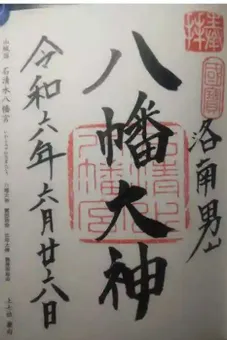 奉拝
国宝
洛南男山
八幡大神
石清水八幡宮
令和六年六月廿六日
山城国 石清水八幡宮